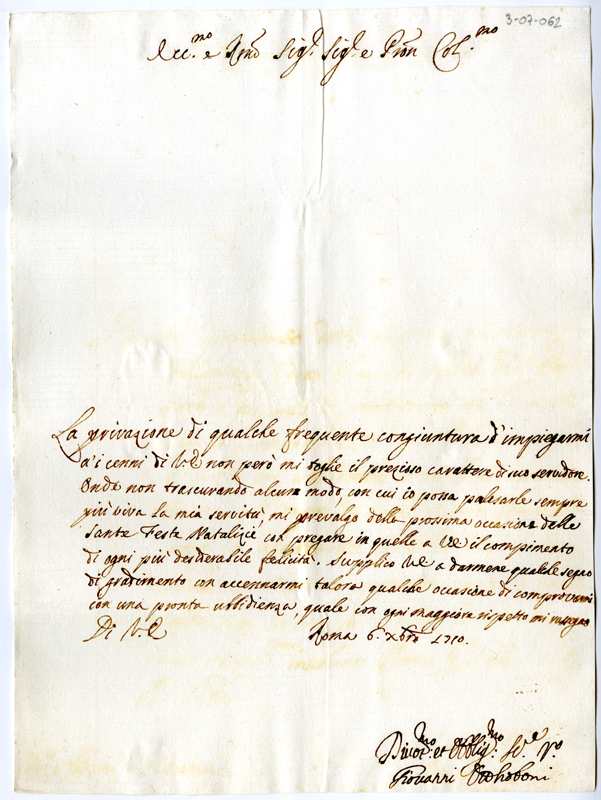 3-07-062
Ecc.mo e Rmo Sig.r Sig.r e Pron Col.mo
La privazione di qualche frequente congiuntura d'impiegarmi
a'i cenni di V.E non però mi toglie il prezioso carattere di suo servidore.
Onde non trascurando alcun modo, con cui io possa palesarle sempre
più viva la mia servitù, mi prevalgo della prossima occasione delle
Sante Feste Natalizie con pregare in quelle a VE il compimento
di ogni più desiderabile felicità. Supplico VE a darmene qualche segno
di gradimento con accennarmi talora qualche occasione di comprovarmi
con una pronta ubbidienza, quale con ogni maggiore rispetto mi rassegno
Di V.E Roma 6. Xbre 1710.
Divot.mo et Oblig.mo Se.e V.o
Giovanni